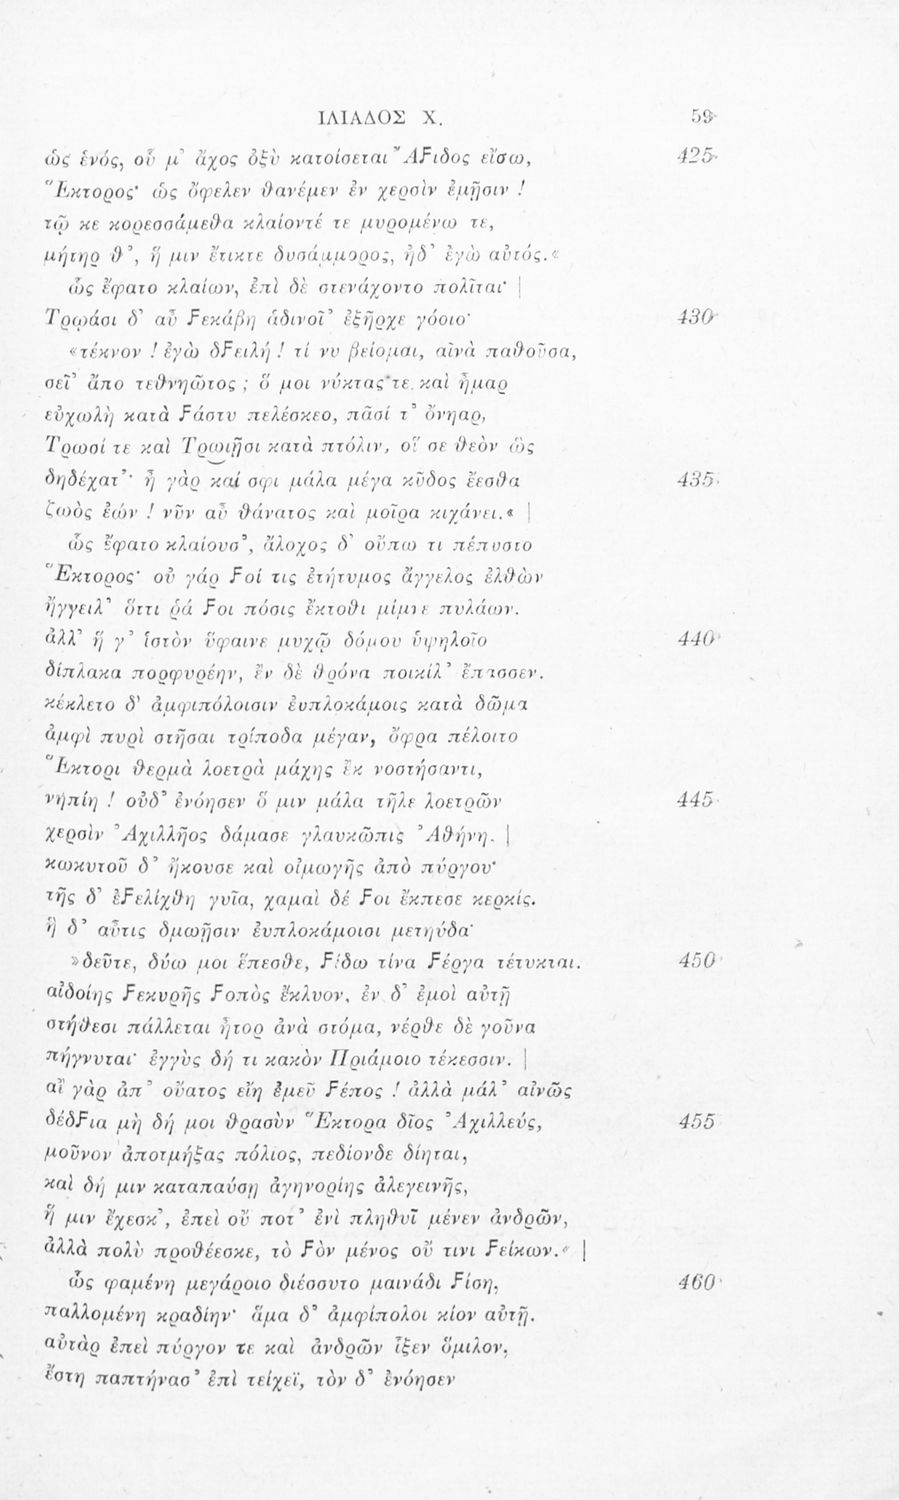 ΙΛΙΑΔΟΣ Χ. 59
ὡς ἑνός, οὗ μ᾽ ἄχος ὀξὺ κατοίσεται Ἄϝιδος εἴσω, 425
Ἕκτορος· ὡς ὄφελεν θανέμεν ἐν χερσὶν ἐμῇσιν !
τῷ κε κορεσσάμεθα κλαίοντέ τε μυρομένω τε,
μήτηρ θ᾽, ἥ μιν ἔτικτε δυσάμμορος, ἠδ᾽ ἐγὼ αὐτός.«
ὣς ἔφατο κλαίων, ἐπὶ δὲ στενάχοντο πολῖται· |
Τρῳάσι δ᾽ αὖ Ϝεκάβη ἁδινοῖ᾽ ἐξῆρχε γόοιο· 430
«τέκνον ! ἐγὼ δϝειλή ! τί νυ βείομαι, αἰνὰ παθοῦσα,
σεῖ᾽ ἄπο τεθνηῶτος ; ὅ μοι νύκτας τε καὶ ἦμαρ
εὐχωλὴ κατὰ Ϝάστυ πελέσκεο, πᾶσί τ᾽ ὄνηαρ,
Τρωσί τε καὶ Τρῳιῇσι κατὰ πτόλιν, οἵ σε θεὸν ὣς
δηδέχατ᾽· ἦ γὰρ καί σφι μάλα μέγα κῦδος ἔεσθα 435
ζωὸς ἐών ! νῦν αὖ θάνατος καὶ μοῖρα κιχάνει.« |
ὣς ἔφατο κλαίουσ᾽, ἄλοχος δ᾽ οὔπω τι πέπυστο
Ἕκτορος· οὐ γάρ Ϝοί τις ἐτήτυμος ἄγγελος ἐλθὼν
ἤγγειλ᾽ ὅττι ῥά Ϝοι πόσις ἔκτοθι μίμνε πυλάων.
ἀλλ᾽ ἥ γ᾽ ἱστὸν ὕφαινε μυχῷ δόμου ὑψηλοῖο 440
δίπλακα πορφυρέην, ἐν δὲ θρόνα ποικίλ᾽ ἔπασσεν.
κέκλετο δ᾽ ἀμφιπόλοισιν ἐυπλοκάμοις κατὰ δῶμα
ἀμφὶ πυρὶ στῆσαι τρίποδα μέγαν, ὄφρα πέλοιτο
Ἕκτορι θερμὰ λοετρὰ μάχης ἒκ νοστήσαντι,
νηπίη ! οὐδ᾽ ἐνόησεν ὅ μιν μάλα τῆλε λοετρῶν 445
χερσὶν Ἀχιλλῆος δάμασε γλαυκῶπις Ἀθήνη. |
κωκυτοῦ δ᾽ ἤκουσε καὶ οἰμωγῆς ἀπὸ πύργου·
τῆς δ᾽ ἐϝελίχθη γυῖα, χαμαὶ δέ Ϝοι ἔκπεσε κερκίς.
ἣ δ᾽ αὖτις δμωῇσιν ἐυπλοκάμοισι μετηύδα·
»δεῦτε, δύω μοι ἕπεσθε, Ϝίδω τίνα Ϝέργα τέτυκται. 450
αἰδοίης Ϝεκυρῆς Ϝοπὸς ἔκλυον, ἐν δ᾽ ἐμοὶ αὐτῇ
στήθεσι πάλλεται ἦτορ ἀνὰ στόμα, νέρθε δὲ γοῦνα
πήγνυται· ἐγγὺς δή τι κακὸν Πριάμοιο τέκεσσιν. |
αἲ γὰρ ἀπ᾽ οὔατος εἴη ἐμεῦ Ϝέπος ! ἀλλὰ μάλ᾽ αἰνῶς
δέδϝια μὴ δή μοι θρασὺν Ἕκτορα δῖος Ἀχιλλεύς, 455
μοῦνον ἀποτμήξας πόλιος, πεδίονδε δίηται,
καὶ δή μιν καταπαύσῃ ἀγηνορίης ἀλεγεινῆς,
ἥ μιν ἔχεσκ᾽, ἐπεὶ οὔ ποτ᾽ ἐνὶ πληθυῖ μένεν ἀνδρῶν,
ἀλλὰ πολὺ προθέεσκε, τὸ Ϝὸν μένος οὔ τινι Ϝείκων.« |
ὣς φαμένη μεγάροιο διέσσυτο μαινάδι Ϝίση, 460
παλλομένη κραδίην· ἅμα δ᾽ ἀμφίπολοι κίον αὐτῇ.
αὐτὰρ ἐπεὶ πύργον τε καὶ ἀνδρῶν ἷξεν ὅμιλον,
ἔστη παπτήνασ᾽ ἐπὶ τείχεϊ, τὸν δ᾽ ἐνόησεν